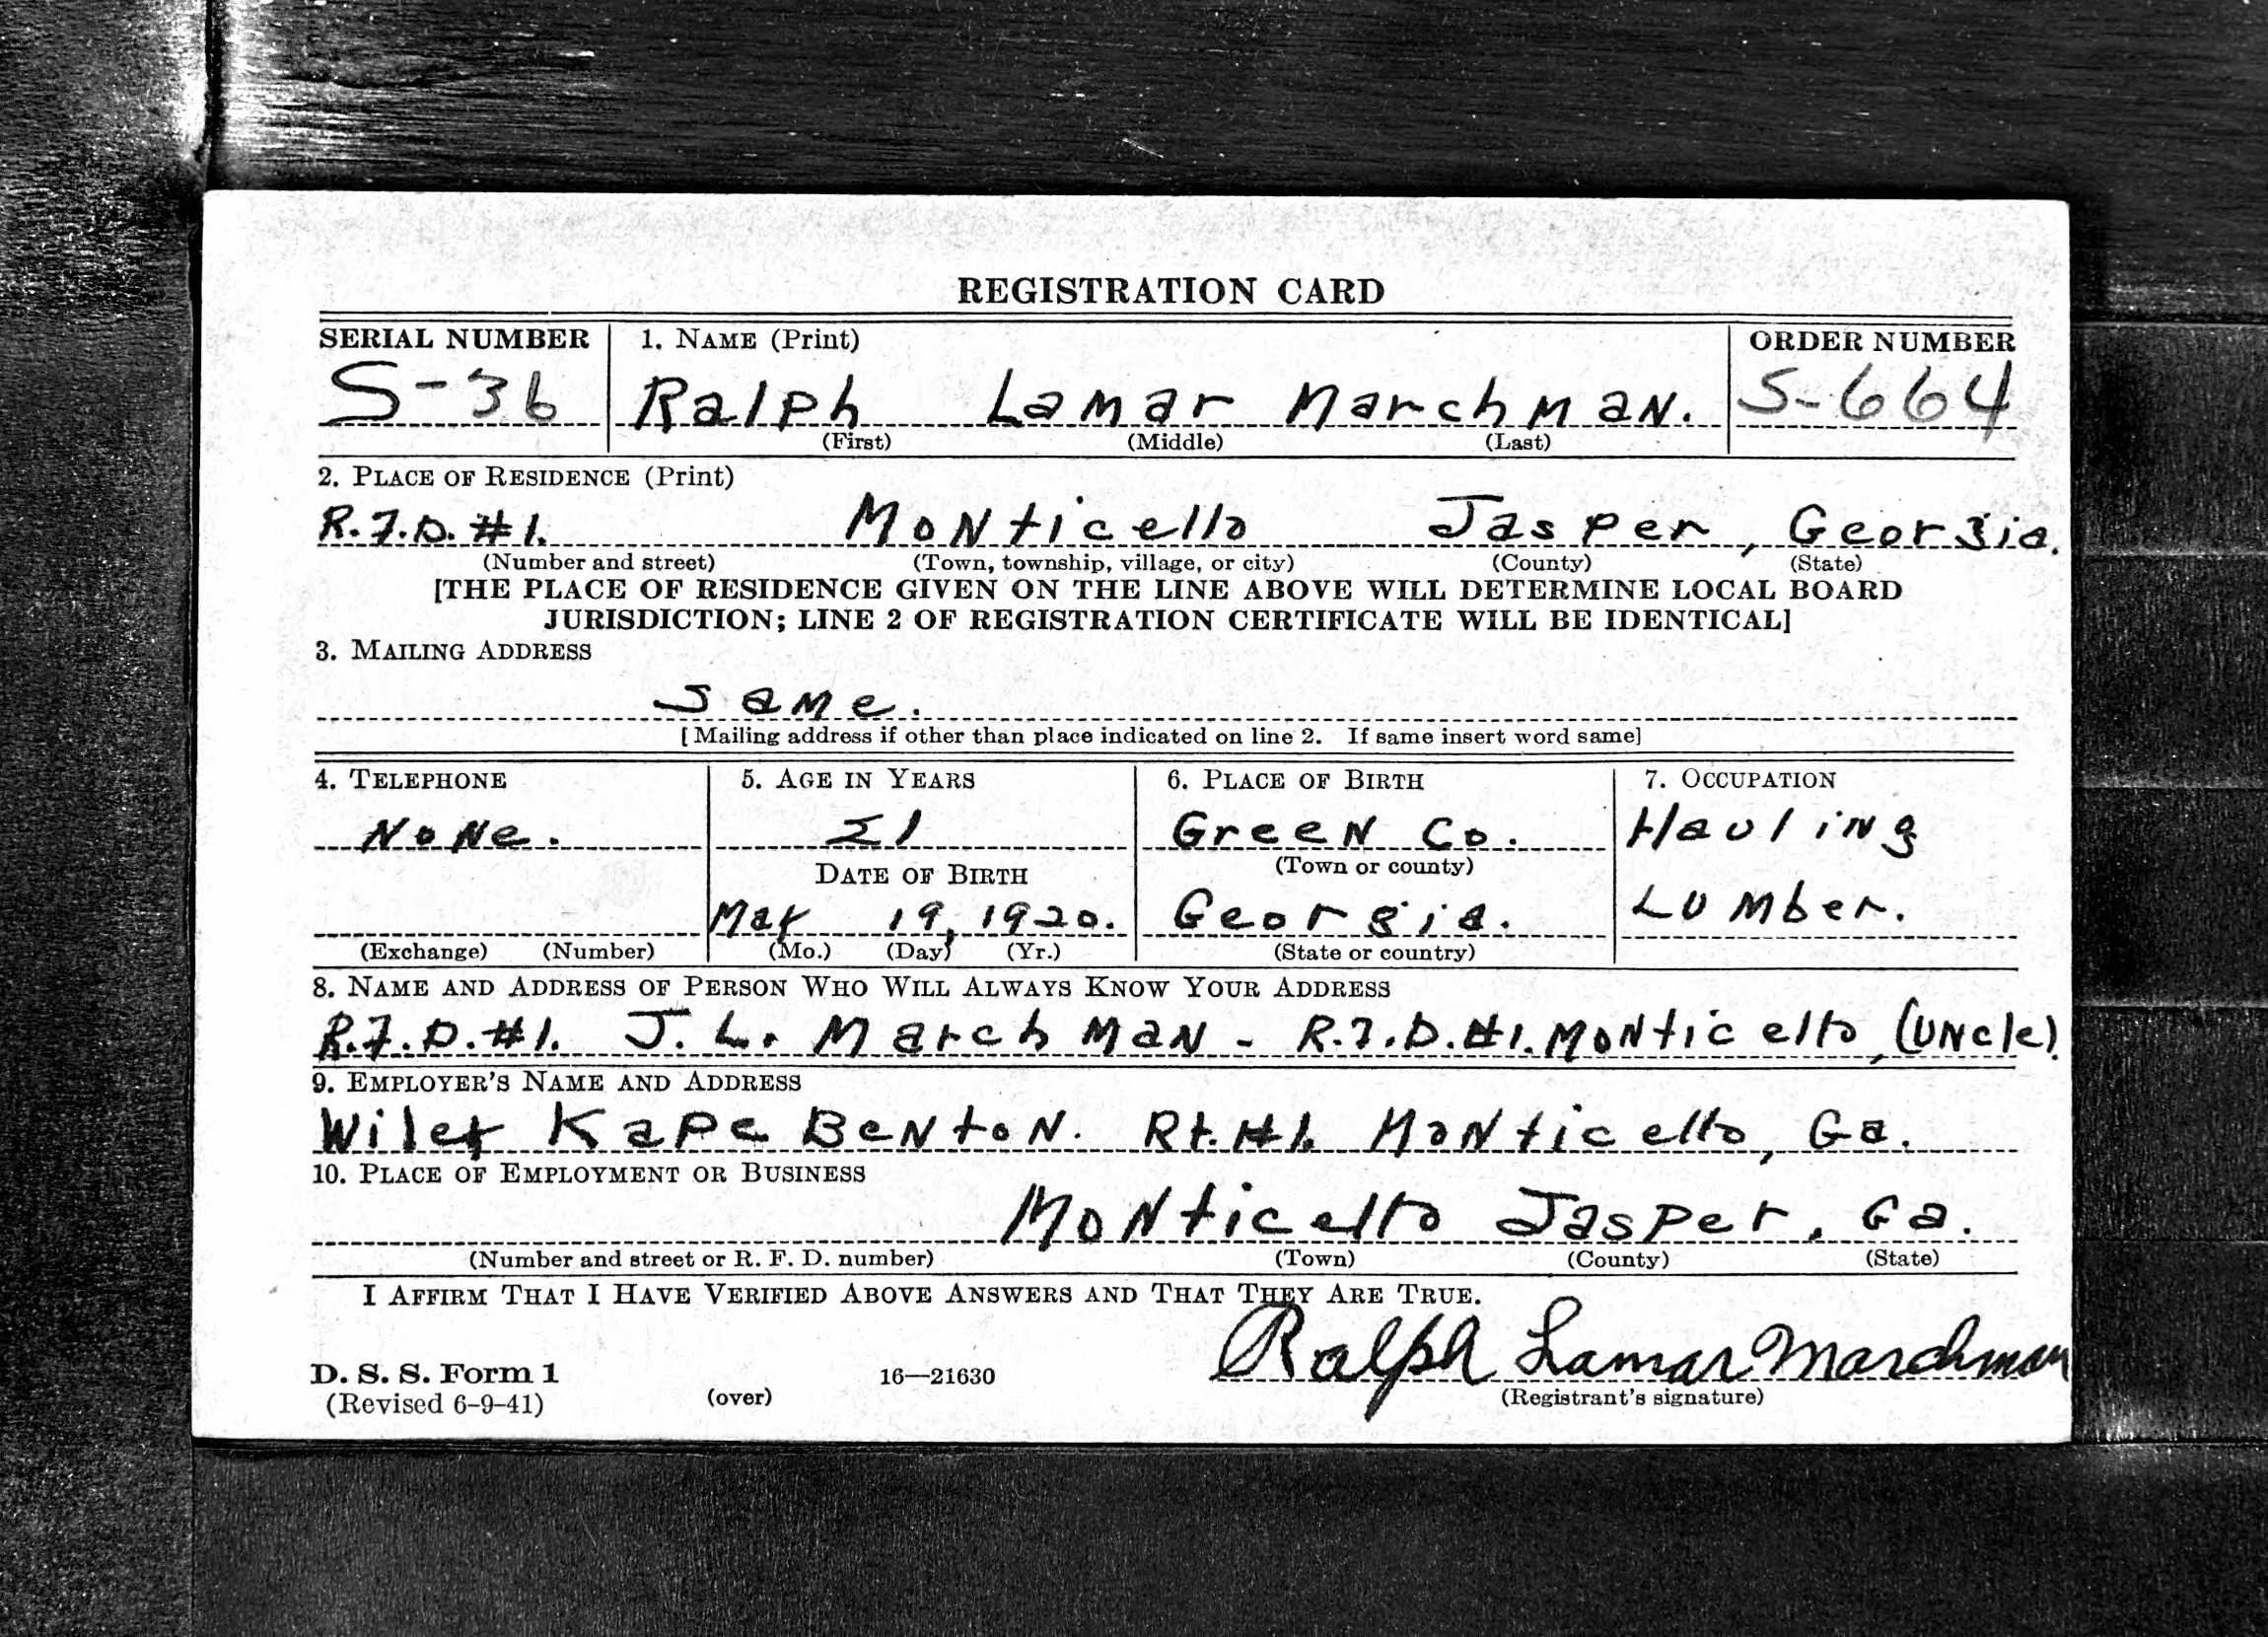 REGISTRATION CARD
SERIAL NUMBER 1. NAME (Print) ORDER NUMBER
S-36 Ralph Lamar Marchman. S-664
(First) (Middle) (Last)
2. PLACE OF RESIDENCE (Print)
R.F.D. #1. Monticello Jasper, Georgia.
(Number and street) (Town, township, village, or city) (County) (State)
[THE PLACE OF RESIDENCE GIVEN ON THE LINE ABOVE WILL DETERMINE LOCAL BOARD
JURISDICTION; LINE 2 OF REGISTRATION CERTIFICATE WILL BE IDENTICAL]
3. MAILING ADDRESS
Same.
[Mailing address if other than place indicated on line 2. If same insert word same]
4. TELEPHONE 5. AGE IN YEARS 6. PLACE OF BIRTH 7. OCCUPATION
None. 21 Green Co. Hauling
DATE OF BIRTH (Town or county)
19, 1920. Georgia. Lumber.
(Exchange) (Number) (Mo.) (Day) (Yr.) (State or country)
8. NAME AND ADDRESS OF PERSON WHO WILL ALWAYS KNOW YOUR ADDRESS
R.F.D. #1. J. L. Marchman - R.F.D. #1. Monticello, (Uncle).
9. EMPLOYER'S NAME AND ADDRESS
Wiley Kape Benton. Rt. #1. Monticello, Ga.
10. PLACE OF EMPLOYMENT OR BUSINESS
Monticello Jasper, Ga.
(Number and street or R. F. D. number) (Town) (County) (State)
I AFFIRM THAT I HAVE VERIFIED ABOVE ANSWERS AND THAT THEY ARE TRUE.
Ralph Lamar Marchman
D. S. S. Form 1 16—21630
(Revised 6-9-41) (over) (Registrant's signature)